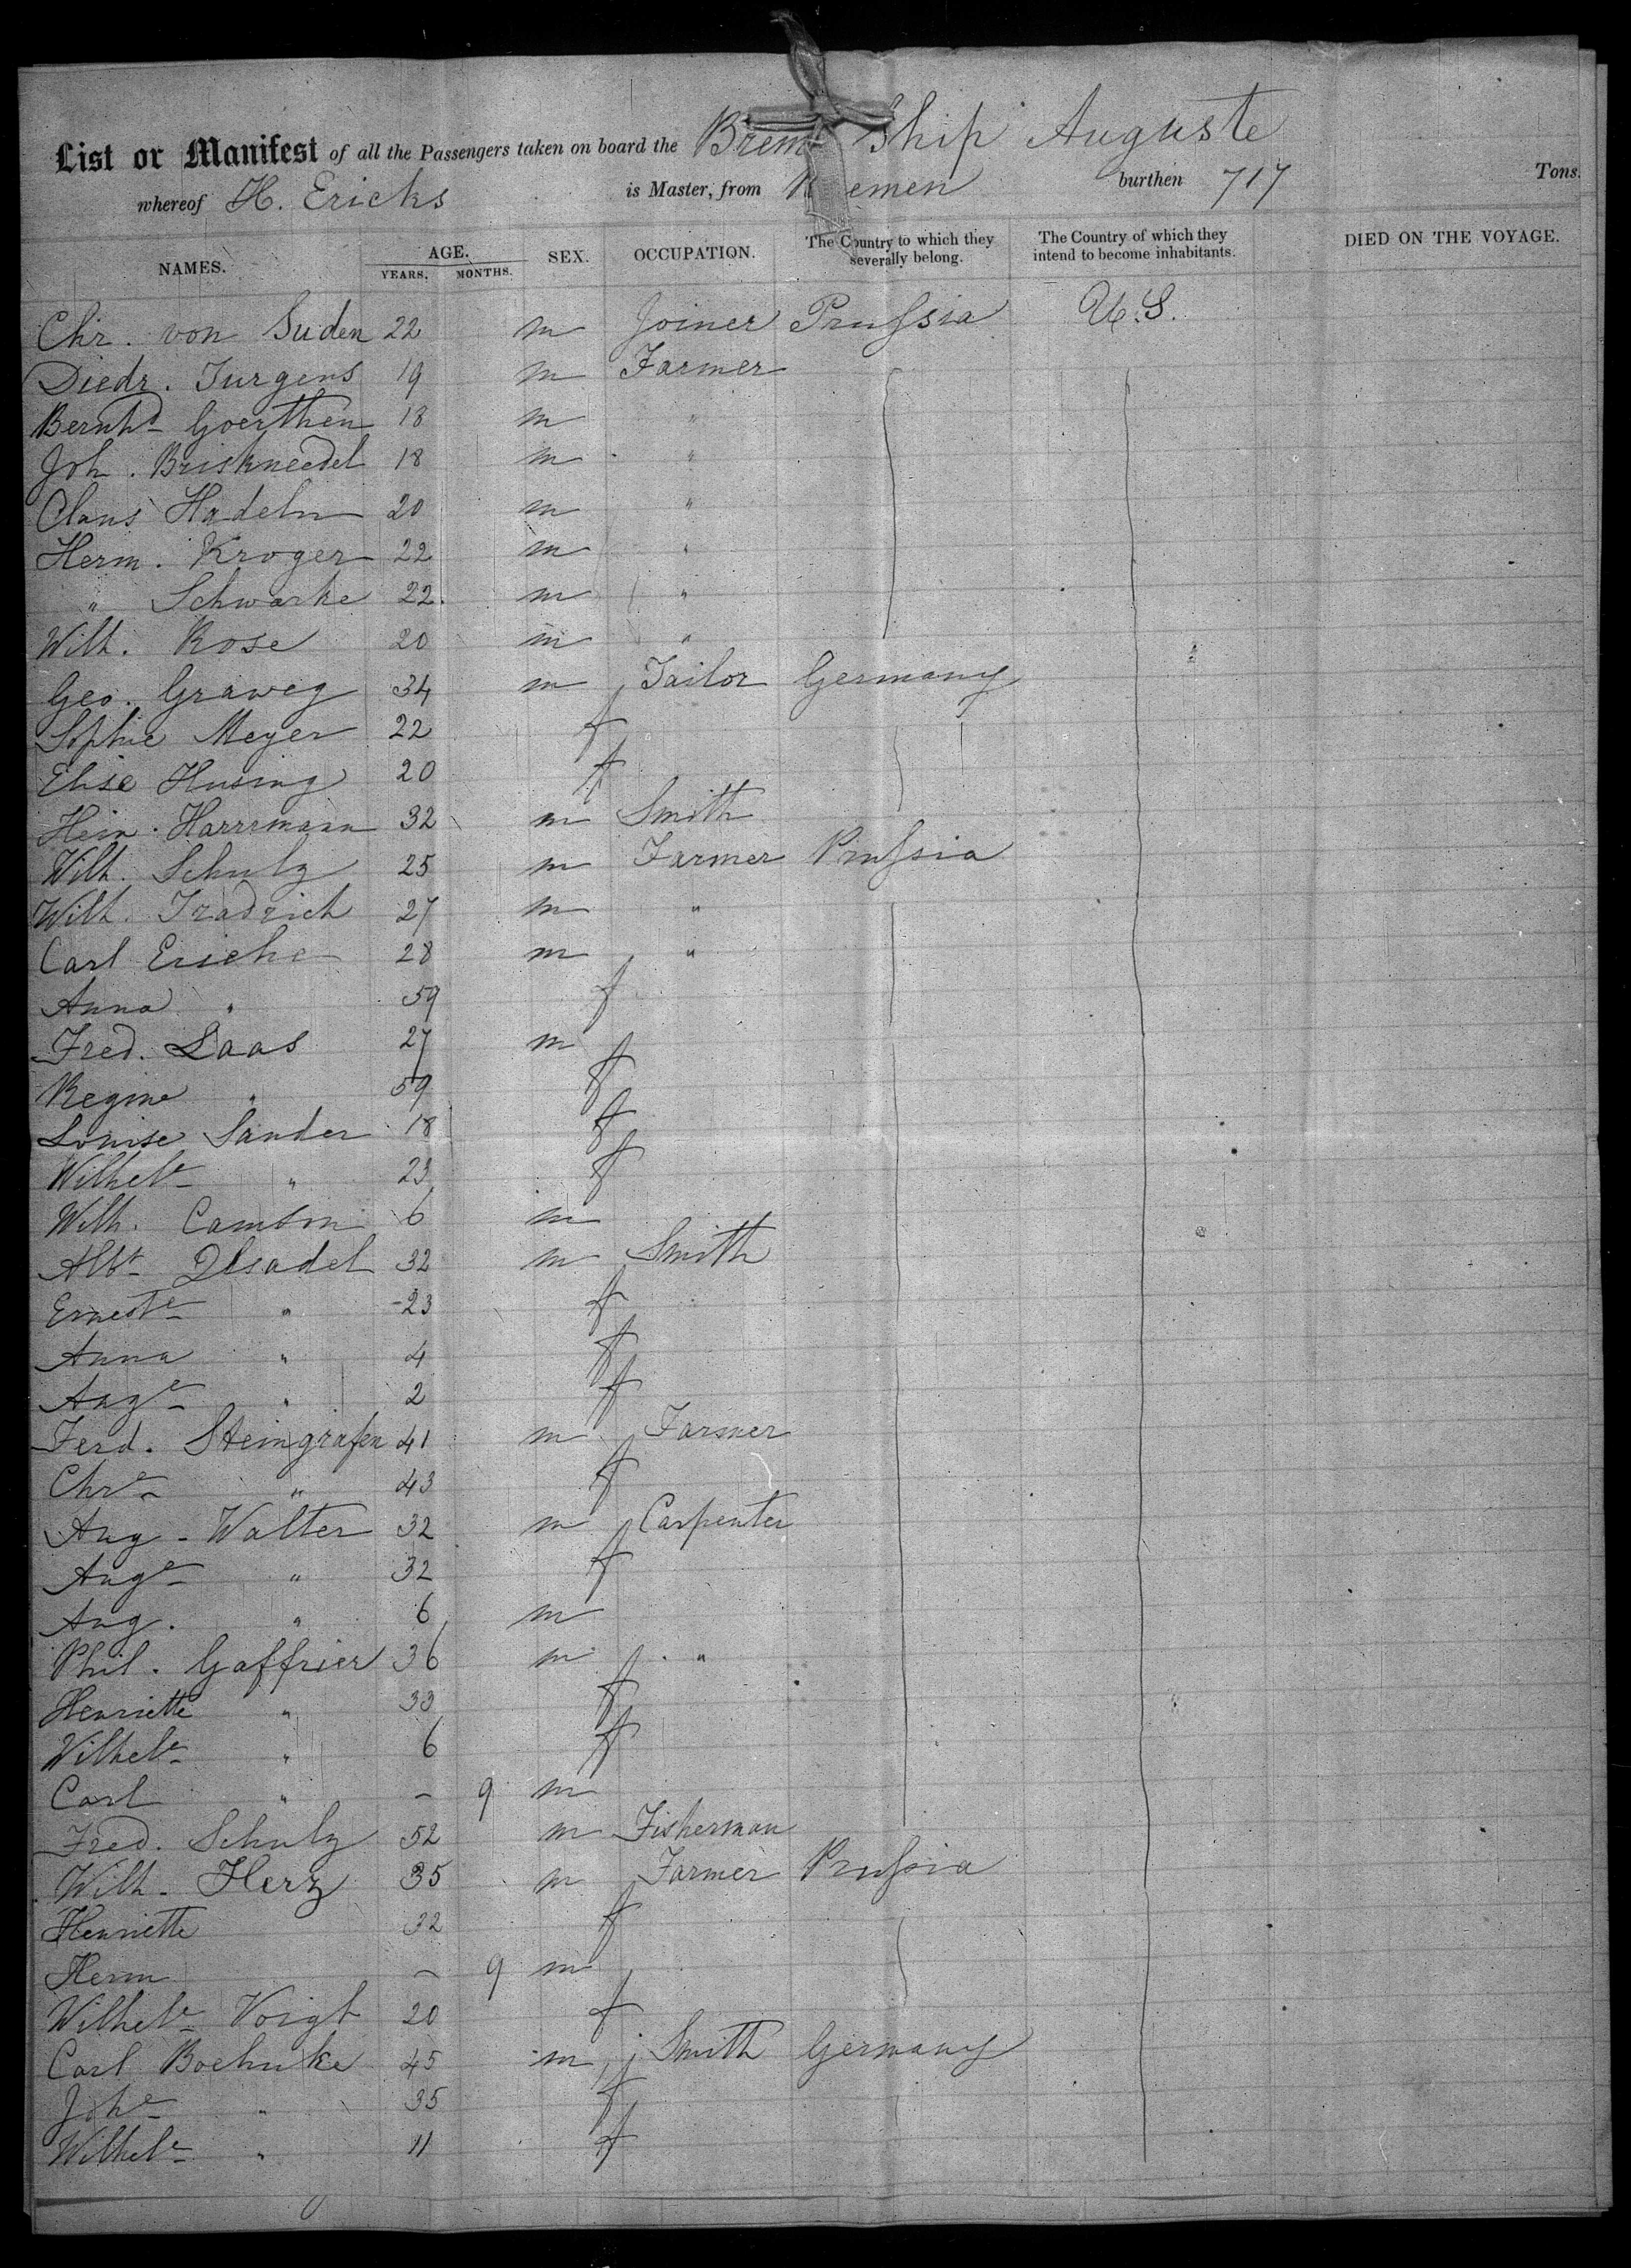 List or Manifest of all the Passengers taken on board the Brem Ship Auguste
whereof H. Ericks is Master, from Bremen burthen 717 Tons.
NAMES. AGE. YEARS. MONTHS. SEX. OCCUPATION. The Country to which they severally belong. The Country of which they intend to become inhabitants. DIED ON THE VOYAGE.
Chr. von Suden 22 m Joiner Prussia U.S.
Diedr. Jurgens 19 m Farmer
Bernhd Goerthen 18 m "
Joh. Briskneedel 18 m "
Claus Hadeln 20 m "
Herm. Kroger 22 m "
" Schwarke 22 m "
Wilh. Rose 20 m "
Geo. Graweg 34 m Tailor Germany
Sophie Meyer 22 f
Elise Husing 20 f
Hein. Harremann 32 m Smith
Wilh. Schulz 25 m Farmer Prussia
Wilh. Fradrich 27 m "
Carl Eriche 28 m "
Anna " 59 f
Fred. Laas 27 m
Regine " 59 f
Louise Sander 18 f
Wilhele " 23 f
Wilh. 6 m
Albt 32 m Smith
Erneste " 23 f
Anna " 4 f
Auge " 2 f
Ferd. Steingrafen 41 m Farmer
Chre " 43 f
Aug - Walter 32 m Carpenter
Auge " 32 f
Aug. " 6 m
Phil. Gaffrier 36 m "
Henriette " 33 f
Wilhele " 6 f
Carl " - 9 m
Fred. Schulz 52 m Fisherman
Wilh. Herz 35 m Farmer Prussia
Henriette 32 f
Herm - 9 m
Wilhele Voigt 20 f
Carl Boehnke 45 m Smith Germany
Johe " 35 f
Wilhele " 11 f